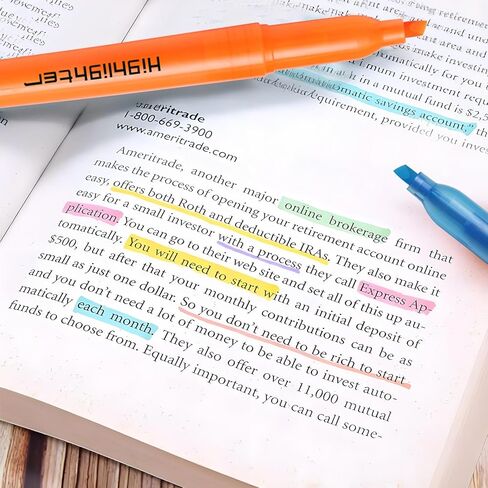 Highlighter
omatic savings account,"
ameritrade
1-800-669-3900
www.ameritrade.com
Ameritrade, another major online brokerage firm that
makes the process of opening your retirement account online
easy, offers both Roth and deductible IRAs. They also make it
easy for a small investor with a process they call Express Ap-
plication. You can go to their web site and set all of this up au-
tomatically. You will need to start with an initial deposit of
$500, but after that your monthly contributions can be as
small as just one dollar. So you don't need to be rich to start
and you don't need a lot of money to be able to invest auto-
matically each month. They also offer over 11,000 mutual
funds to choose from. Equally important, you can call some-